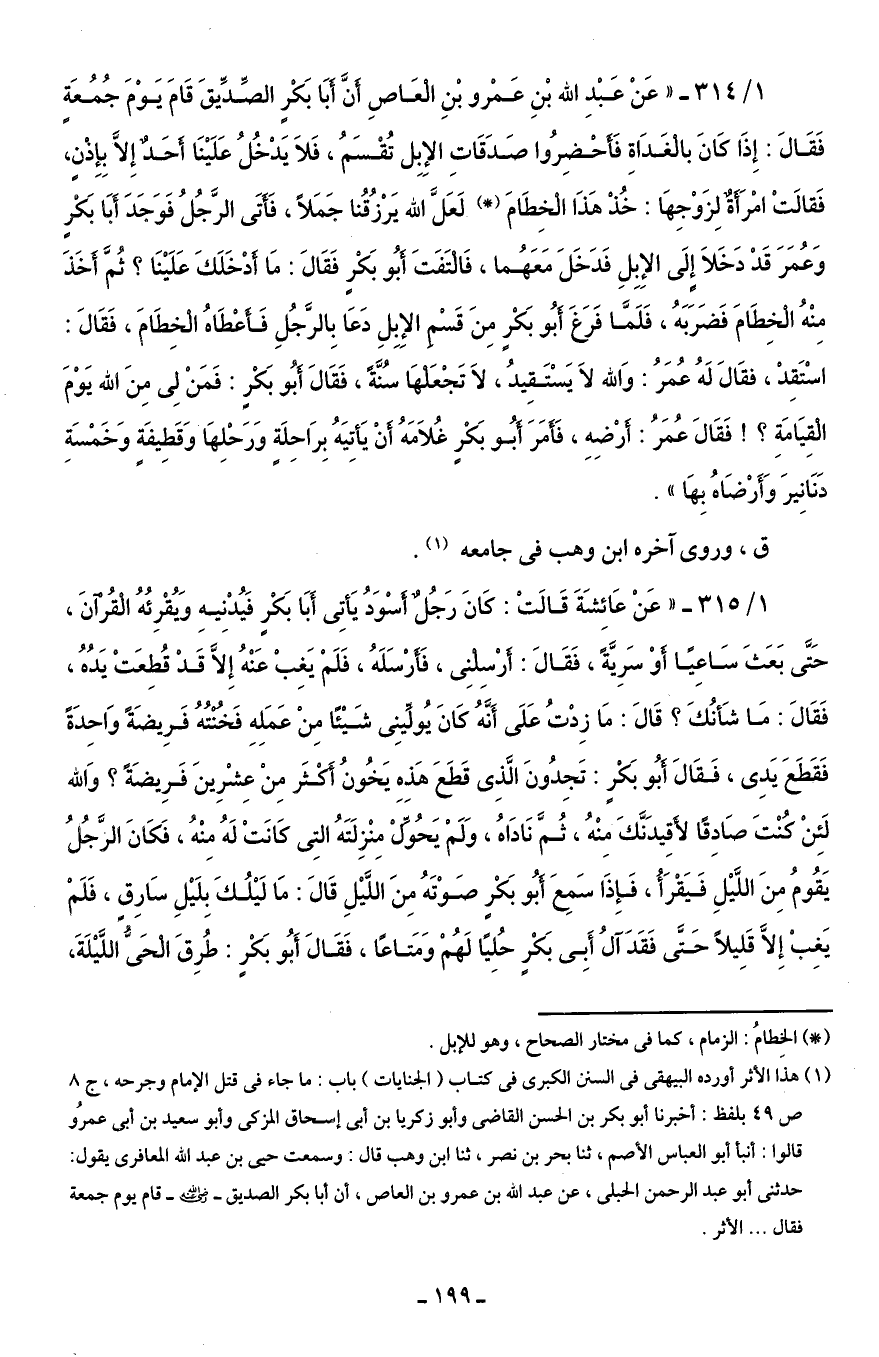 ٣١٤/١ ـ « عَنْ عَبْدِ الله بْنِ عَمْرو بْنِ الْعَاصِ أَنَّ أَبَا بَكْرٍ الصِّدِّيقَ قَامَ يَوْمَ جُمُعَةٍ
فَقَالَ : إذَا كَانَ بالْغَدَاةِ فَأَحْضِرُوا صَدَقَاتِ الإبِلِ تُقْسَمُ ، فَلاَ يَدْخُلُ عَلَيْنَا أَحَدٌ إلاَّ بِإذْنٍ،
فَقَالَتْ امْرَأَةٌ لِزَوْجِهَا : خُذْ هَذَا الْخِطَامَ (*) لَعَلَّ الله يَرْزُقُنا جَمَلاً ، فَأَتَى الرَّجُلُ فَوَجَدَ أبَا بَكْرٍ
وَعُمَرَ قَدْ دَخَلاَ إلَى الإبِلِ فَدَخَلَ مَعَهُما ، فَالْتَفَتَ أَبُو بَكْرٍ فَقَالَ : مَا أَدْخَلَكَ عَلَيْنَا ؟ ثُمَّ أَخَذَ
مِنْهُ الْخِطَامَ فَضَرَبَهُ ، فَلَمَّا فَرَغَ أَبُو بَكْرٍ مِنَ قَسْمِ الإبِلِ دَعَا بِالرَّجُلِ فَأَعْطَاهُ الْخِطَامَ ، فَقَالَ :
اسْتَقِدْ ، فقَالَ لَهُ عُمَرُ : وَالله لاَ يَسْتَقِيدُ ، لاَ تَجْعَلْهَا سُنَّةً ، فَقَالَ أَبُو بَكْرٍ : فَمَنْ لِى مِنَ الله يَوْمَ
الْقِيَامَةِ ؟ ! فَقَالَ عُمَرُ : أَرْضِهِ ، فَأَمَرَ أَبُو بَكْرٍ غُلاَمَهُ أَنْ يَأتِيَهُ بِرَاحِلَةٍ وَرَحْلِهَا وَقَطِيفَةٍ وَخَمْسَةِ
دَنَانِيرَ وَأَرْضَاهُ بِهَا » .
ق ، وروى آخره ابن وهب فى جامعه (١) .
٣١٥/١ ـ « عَنْ عَائِشَةَ قَالَتْ : كَانَ رَجُلٌ أَسْوَدُ يَأتِى أَبَا بَكْرٍ فَيُدْنِيهِ وَيُقْرِئُهُ الْقُرْآنَ ،
حَتَّى بَعَثَ سَاعِيًا أَوْ سَرِيَّةً ، فَقَالَ : أَرْسِلْنِى ، فَأَرْسَلَهُ ، فَلَمْ يَغِبْ عَنْهُ إلاَّ قَدْ قُطِعَتْ يَدُهُ ،
فَقَالَ : مَا شَأنُكَ ؟ قَالَ : مَا زِدْتُ عَلَى أَنَّهُ كَانَ يُولِّينِى شَيْئًا مِنْ عَمَلِهِ فَخُنْتُهُ فَرِيضَةً وَاحِدَةً
فَقَطَعَ يَدِى ، فَقَالَ أَبُو بَكْرٍ : تَجِدُونَ الَّذِى قَطَعَ هَذِهِ يَخُونُ أَكْثَر مِنْ عِشْرِينَ فَرِيضَةً ؟ وَالله
لَئِنْ كُنْتَ صَادِقًا لأُقِيدَنَّكَ مِنْهُ ، ثُمَّ نَادَاهُ ، وَلَمْ يَحُوِّلْ مَنْزِلَتَهُ التِى كَانَتْ لَهُ مِنْهُ ، فَكَانَ الرَّجُلُ
يَقُومُ مِنَ اللَّيْلِ فَيَقْرَأُ ، فَإذَا سَمِعَ أَبُو بَكْرٍ صَوْتَهُ مِنَ اللَّيْلِ قَالَ : مَا لَيْلُكَ بِلَيْلِ سَارِقٍ ، فَلَمْ
يَغِبْ إلاَّ قَلِيلاً حَتَّى فَقَدَ آلُ أَبِى بَكْرٍ حُلِيًا لَهُمْ وَمَتَاعًا ، فَقَالَ أَبُو بَكْرٍ : طُرِقَ الْحَىُّ اللَّيْلَةَ،
(*) الخطامُ : الزمام ، كما فى مختار الصحاح ، وهو للإبل .
(١) هذا الأثر أورده البيهقى فى السنن الكبرى فى كتاب ( الجنايات ) باب : ما جاء فى قتل الإمام وجرحه ، ج ٨
ص ٤٩ بلفظ : أخبرنا أبو بكر بن الحسن القاضى وأبو زكريا بن أبى إسحاق المزكى وأبو سعيد بن أبى عمرو
قالوا : أنبأ أبو العباس الأصم ، ثنا بحر بن نصر ، ثنا ابن وهب قال : وسمعت حيى بن عبد الله المعافرى يقول:
حدثنى أبو عبد الرحمن الحبلى ، عن عبد الله بن عمرو بن العاص ، أن أبا بكر الصديق ـ رضي الله عنه ـ قام يوم جمعة
فقال ... الأثر .
ـ ١٩٩ ـ